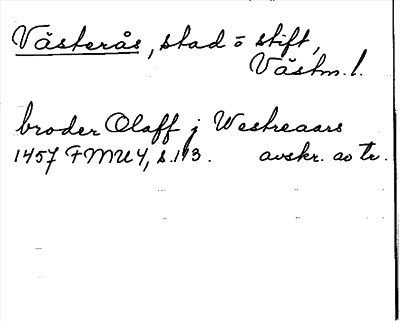 Västerås, stad o stift,
Västm. l.
broder Olaff j Westreaars
1457 FMU 4, s. 113. avskr. av tr.